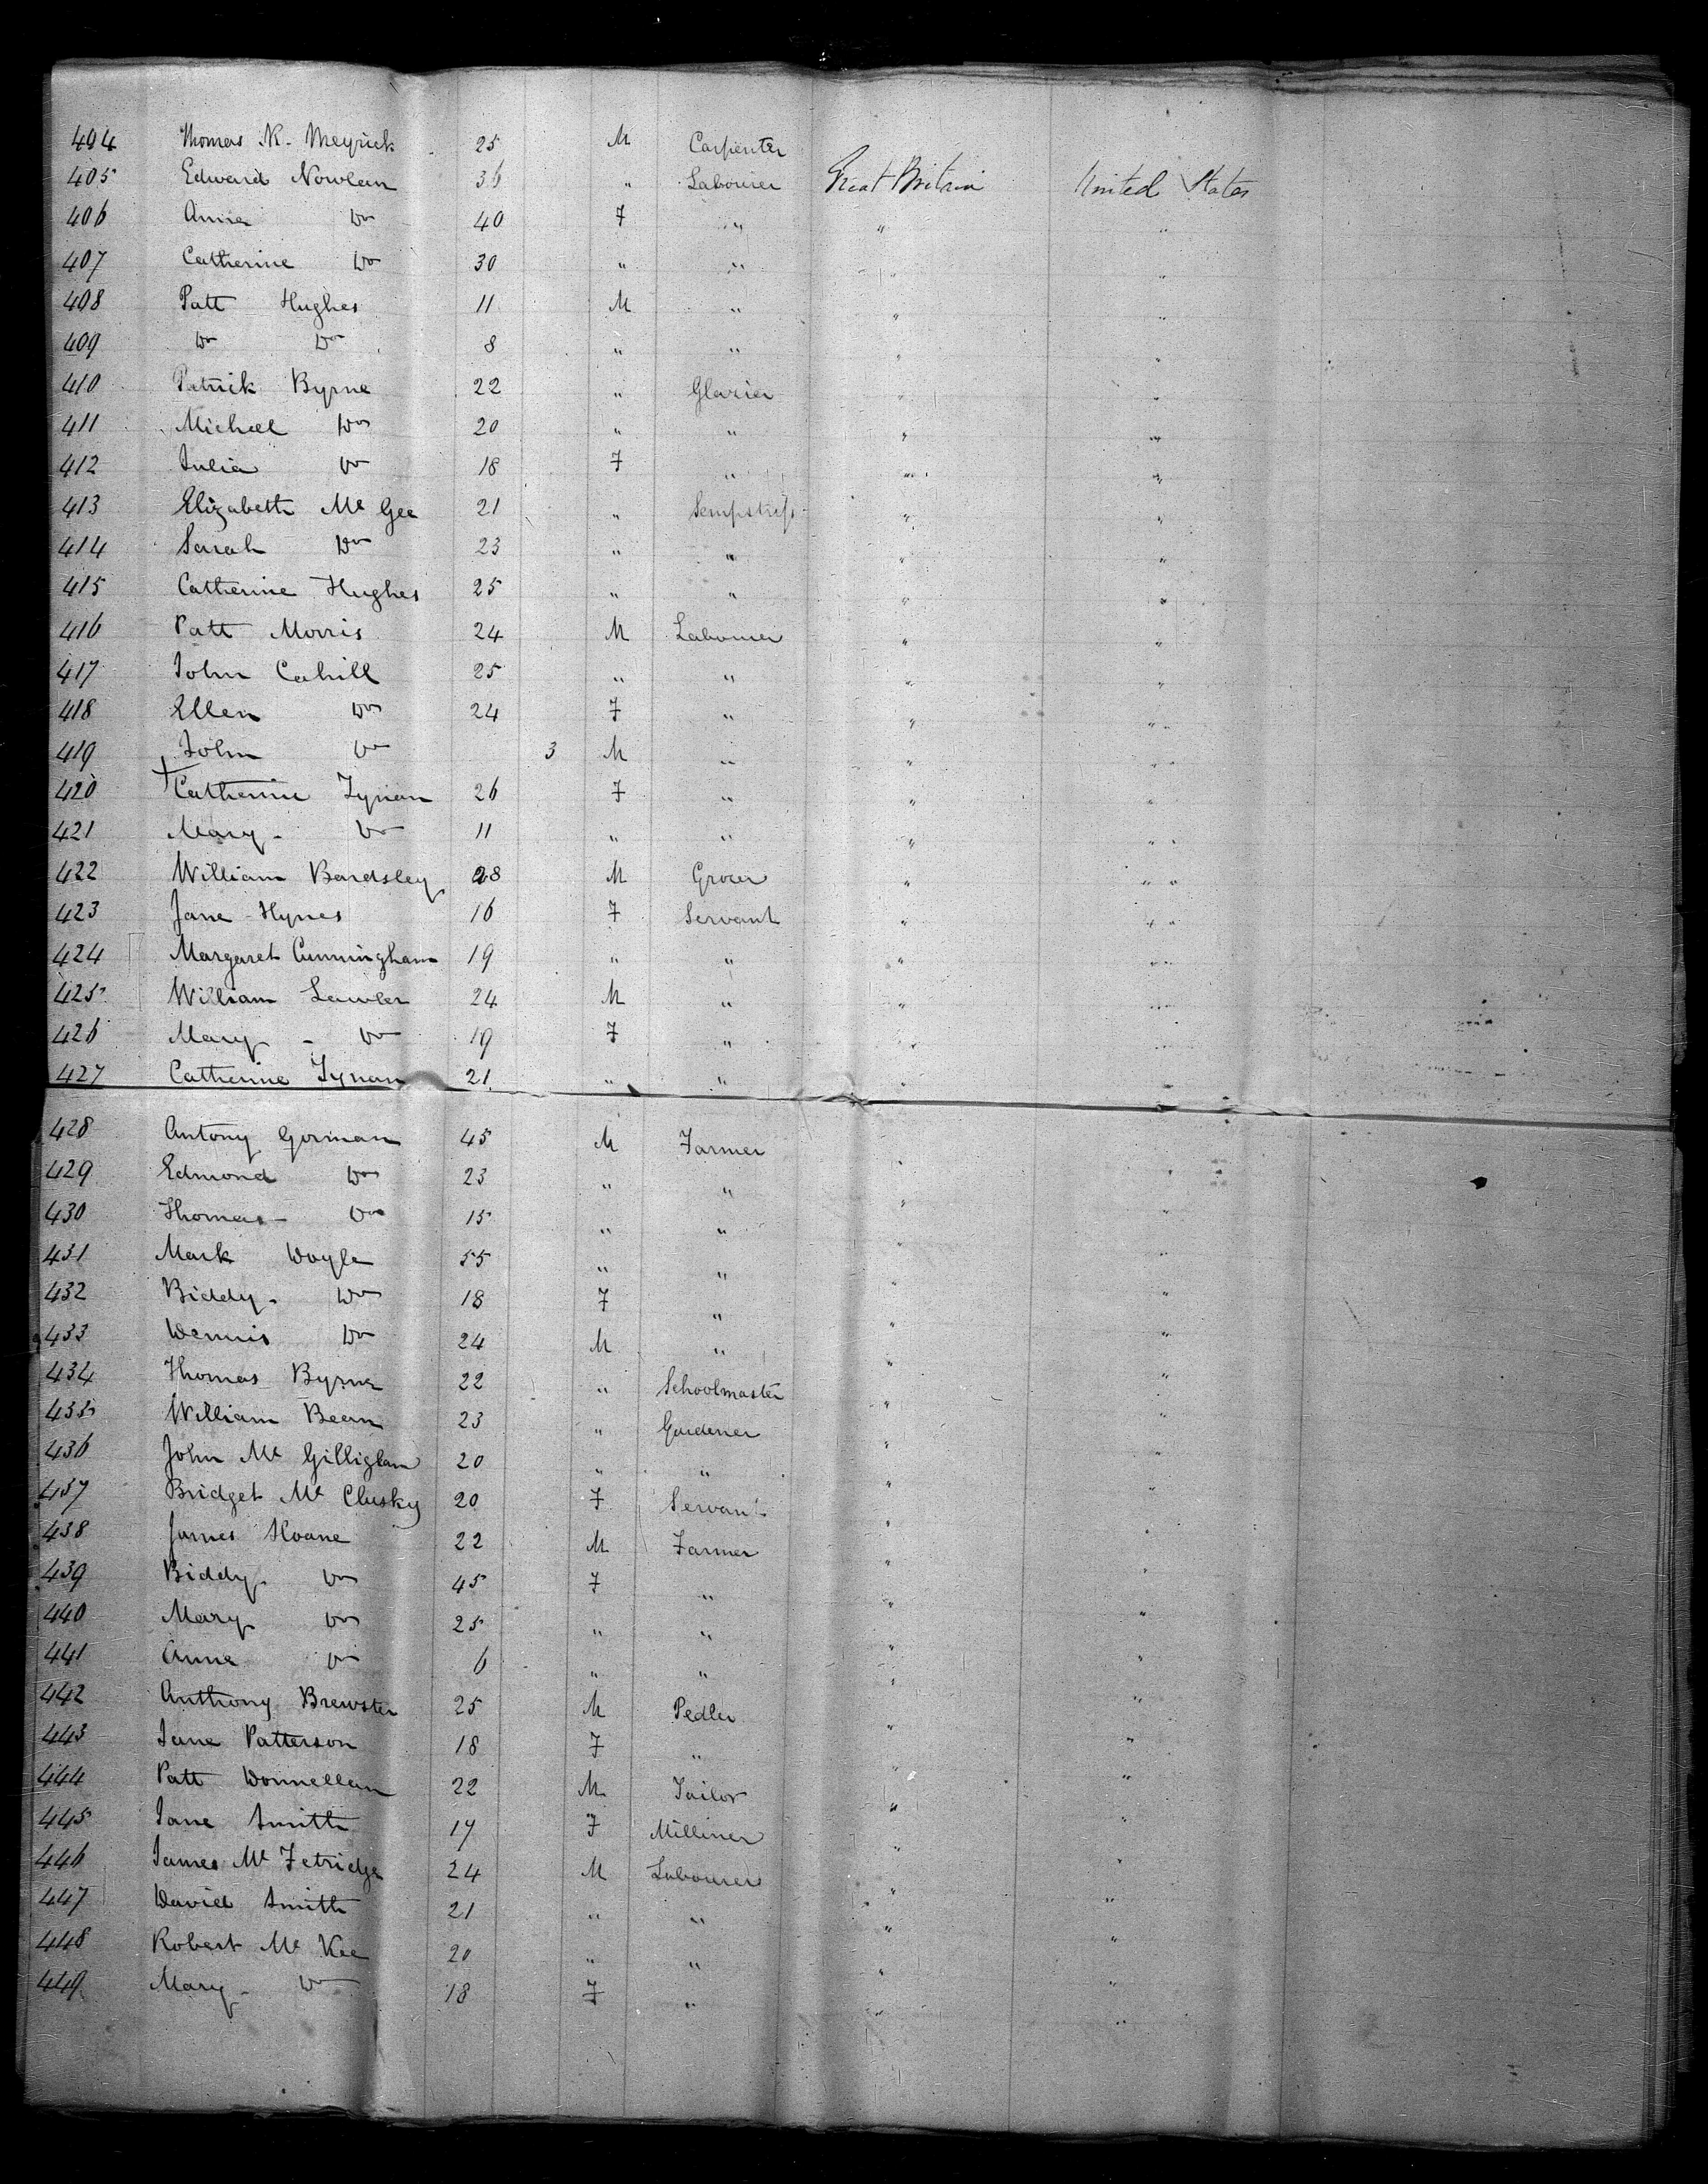 404 Thomas R. Meyrick 25 M Carpenter
405 Edward Nowlan 36 " Labourer Great Britain United States
406 Anne Do 40 F " " "
407 Catherine Do 30 " " " "
408 Patt Hughes 11 M " " "
409 Do Do 8 " " " "
410 Patrick Byrne 22 " Glazier " "
411 Michael Do 20 " " " "
412 Julia Do 18 F " " "
413 Elizabeth Mc Gee 21 " Sempstress " "
414 Sarah Do 23 " " " "
415 Catherine Hughes 25 " " " "
416 Patt Morris 24 M Labourer " "
417 John Cahill 25 " " " "
418 Ellen Do 24 F " " "
419 John Do 3 M " " "
420 Catherine Tynan 26 F " " "
421 Mary Do 11 " " " "
422 William Bardsley 28 M Grocer " "
423 Jane Hynes 16 F Servant " "
424 Margaret Cunningham 19 " " " "
425 William Lawler 24 M " " "
426 Mary - Do 19 F " " "
427 Catherine Tynan 21 " " " "
428 Antony Gorman 45 M Farmer " "
429 Edmond Do 23 " " " "
430 Thomas Do 15 " " " "
431 Mark Doyle 55 " " " "
432 Biddy Do 18 F " " "
433 Dennis Do 24 M " " "
434 Thomas Byrne 22 " Schoolmaster " "
435 William Bean 23 " Gardener " "
436 John Mc Gilligham 20 " " " "
437 Bridget Mc Clusky 20 F Servant " "
438 James Hoane 22 M Farmer " "
439 Biddy Do 45 F " " "
440 Mary Do 25 " " " "
441 Anne Do 6 " " " "
442 Anthony Brewster 25 M Pedler " "
443 Jane Patterson 18 F " " "
444 Patt Donnellan 22 M Tailor " "
445 Jane Smith 17 F Milliner " "
446 James Mc Fetridge 24 M Labourer " "
447 David Smith 21 " " " "
448 Robert Mc Kee 20 " " " "
449 Mary Do 18 F " " "